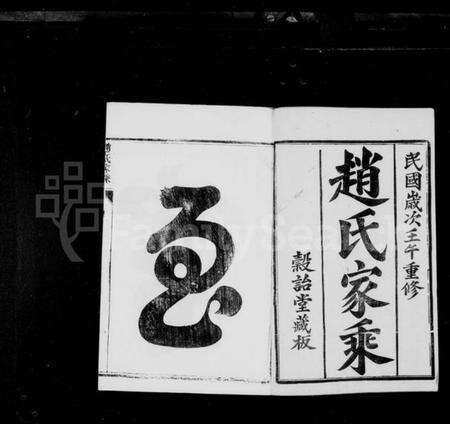 民國歲次壬午重修
趙氏家乘
穀詒堂藏板
FamilySearch